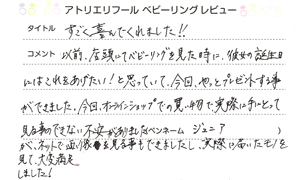 アトリエリフール ベビーリングレビュー
タイトル すごく喜んでくれました!!
コメント 以前、店頭にてベビーリングを見た時に、彼女の誕生日
にはこれをあげたい!と思っていて、今回、やっとプレゼントする事
ができました。今回、オンラインショップでの買い物で、実際に手にとって
見る事のできない不安がありました ペンネーム ジュニア
が、ネットで画像を見る事もできましたし、実際に届いたモノを
見て、大変満足
しました!